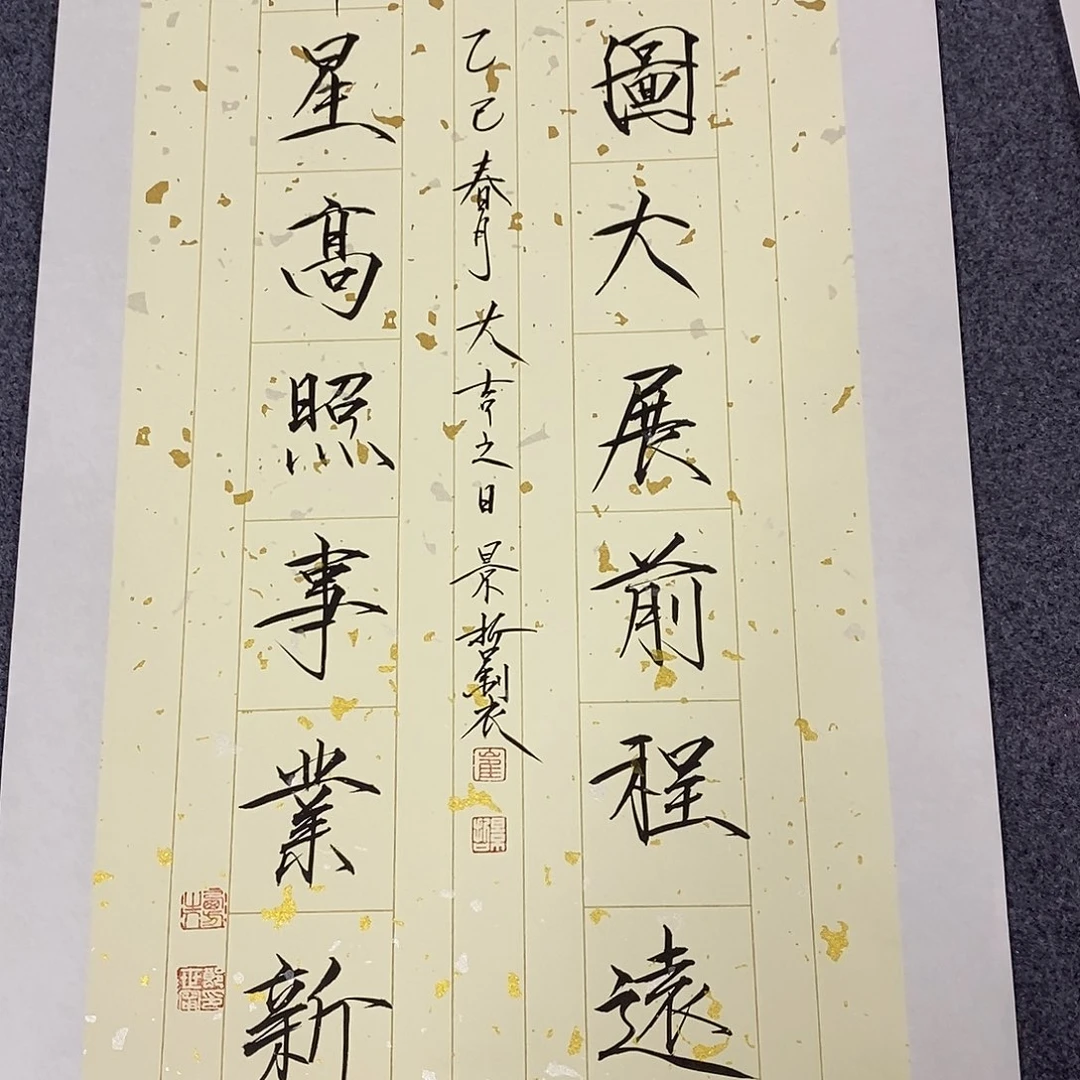 圖大展前程遠
乙巳春月大吉之日景哲製
崔
景哲
星高照事業新